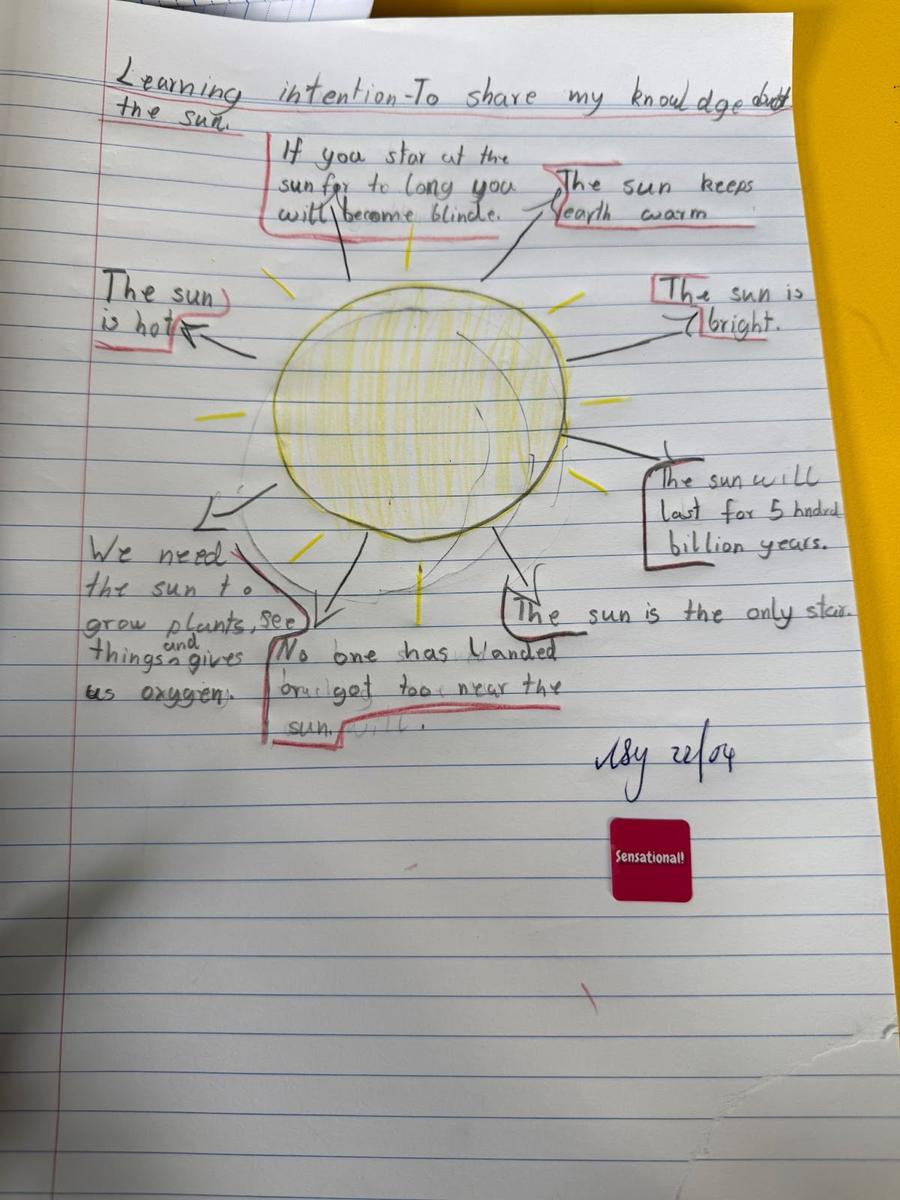 Learning intention-To share my knowledge about
the sun.
If you star at the
sun for to long you
will become blinde.
The sun keeps
earth warm
The sun
is hot
The sun is
bright.
The sun will
last for 5 hndred
billion years.
We need
the sun to
grow plants, see
things and gives
us oxygen.
The sun is the only star.
No one has landed
or got too near the
sun.
22/04
Sensational!